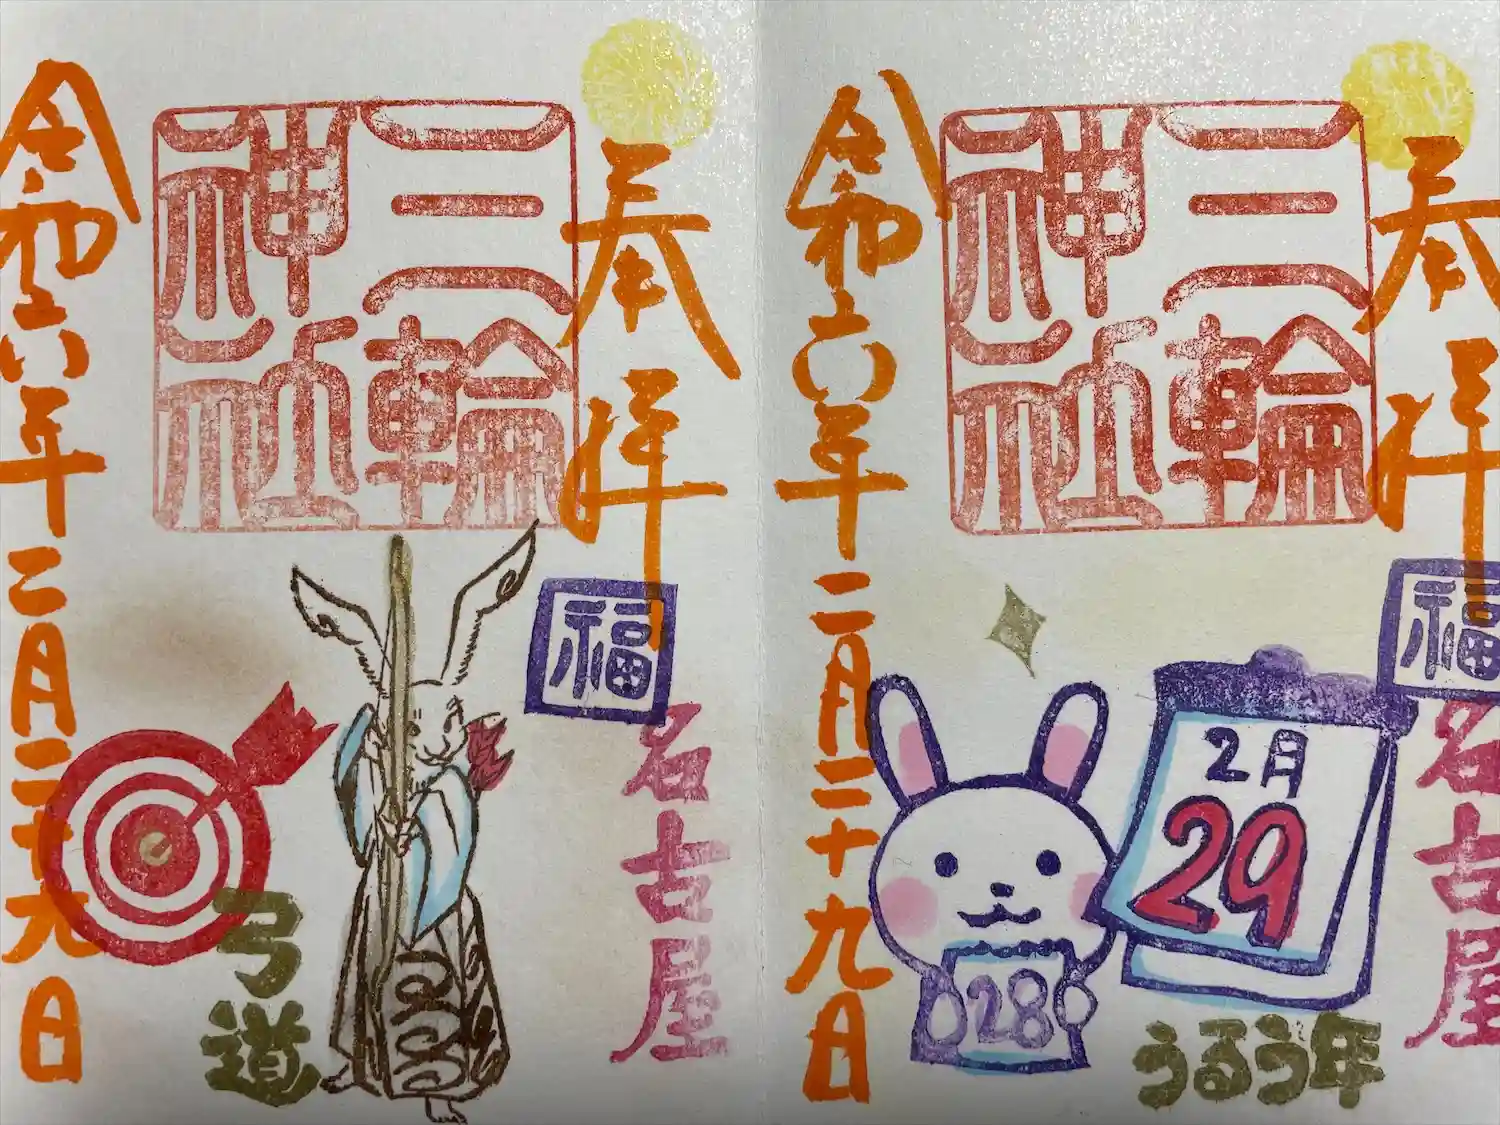 奉拝
三輪
神社
福
名古屋
弓道
令和六年二月二十九日
奉拝
三輪
神社
福
名古屋
2月
29
28
うるう年
令和六年二月二十九日